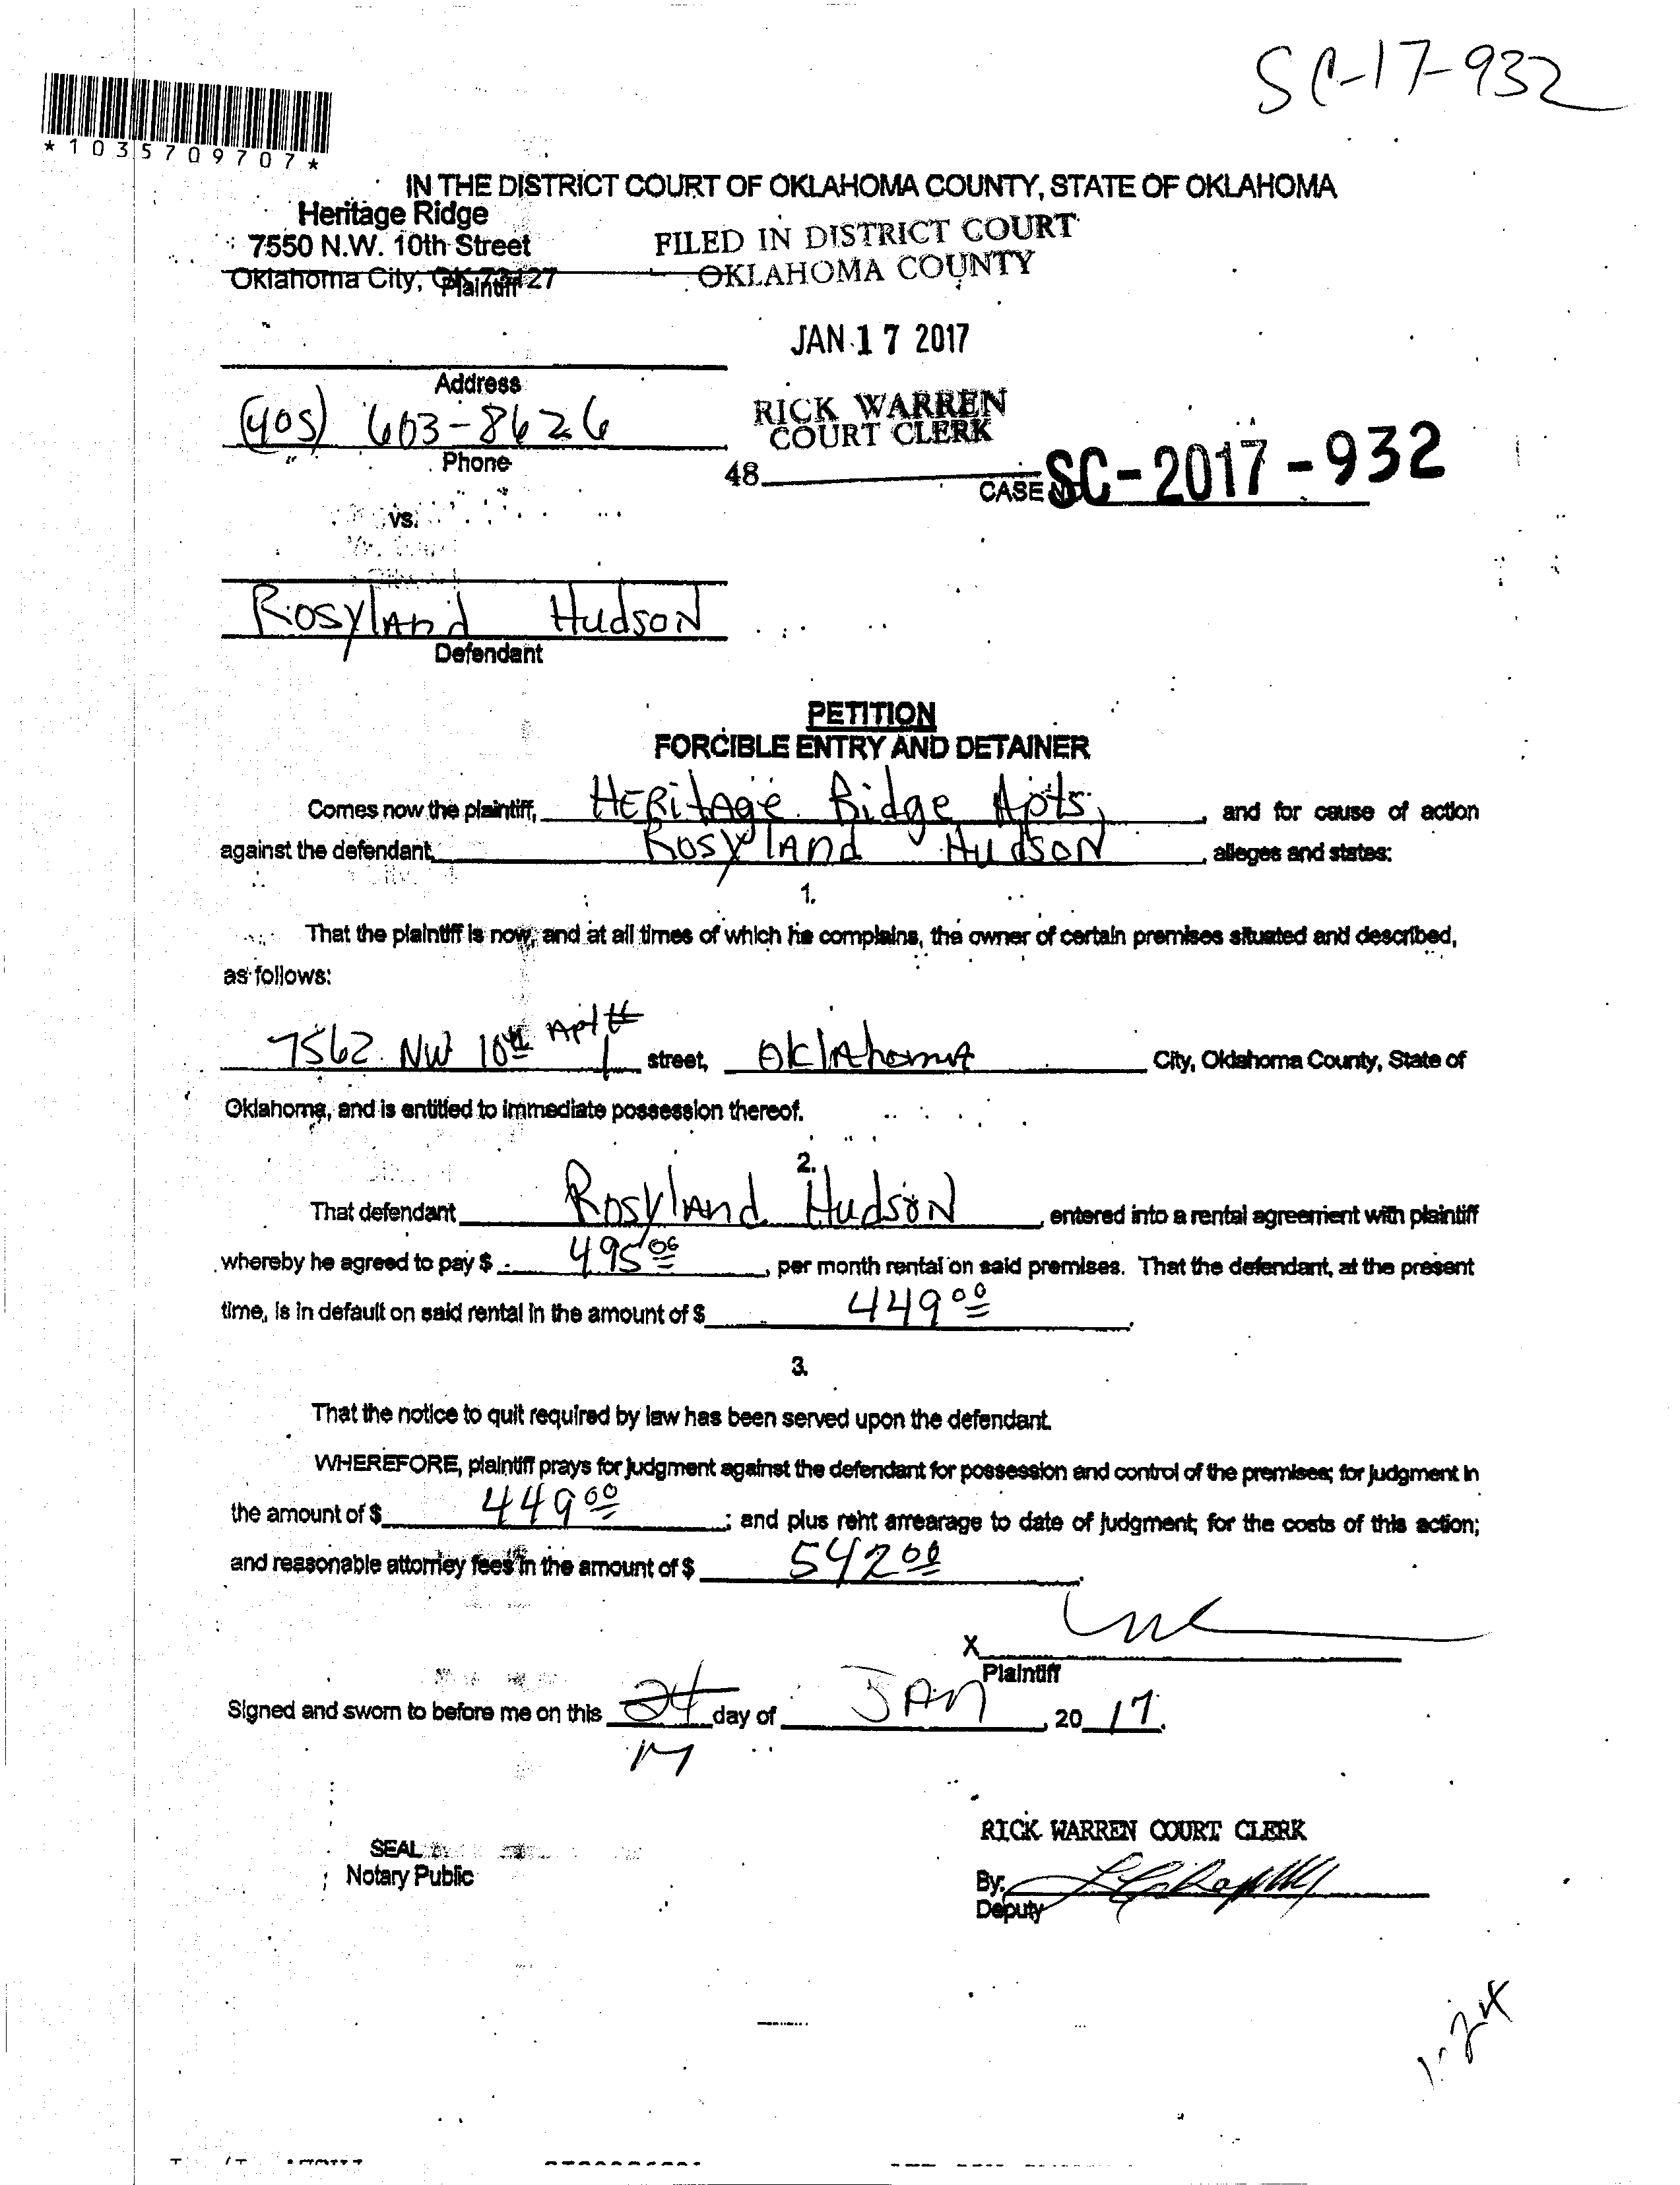 SC-17-932
*1035709707*
IN THE DISTRICT COURT OF OKLAHOMA COUNTY, STATE OF OKLAHOMA
Heritage Ridge
7550 N.W. 10th Street
Oklahoma City, OK 73127
Plaintiff
FILED IN DISTRICT COURT
OKLAHOMA COUNTY
JAN 17 2017
Address
RICK WARREN
COURT CLERK
(405) 603-8626
Phone
48
CASE NO SC-2017-932
vs.
Rosyland Hudson
Defendant
PETITION
FORCIBLE ENTRY AND DETAINER
Comes now the plaintiff, HERitAge Ridge Apts, , and for cause of action
against the defendant, RosylAnd HudsoN , alleges and states:
1.
That the plaintiff is now, and at all times of which he complains, the owner of certain premises situated and described,
as follows:
7562 NW 10th Apt # 1 street, OklAhomA City, Oklahoma County, State of
Oklahoma, and is entitled to immediate possession thereof.
2.
That defendant RosylAnd HudsoN , entered into a rental agreement with plaintiff
whereby he agreed to pay $ 495 00 , per month rental on said premises. That the defendant, at the present
time, is in default on said rental in the amount of $ 449 00 .
3.
That the notice to quit required by law has been served upon the defendant.
WHEREFORE, plaintiff prays for judgment against the defendant for possession and control of the premises; for judgment in
the amount of $ 449 00 ; and plus rent arrearage to date of judgment; for the costs of this action;
and reasonable attorney fees in the amount of $ 542 00 .
X
Plaintiff
Signed and sworn to before me on this 24 day of JAN , 20 17.
17
SEAL
Notary Public
RICK WARREN COURT CLERK
By:
Deputy
1-24